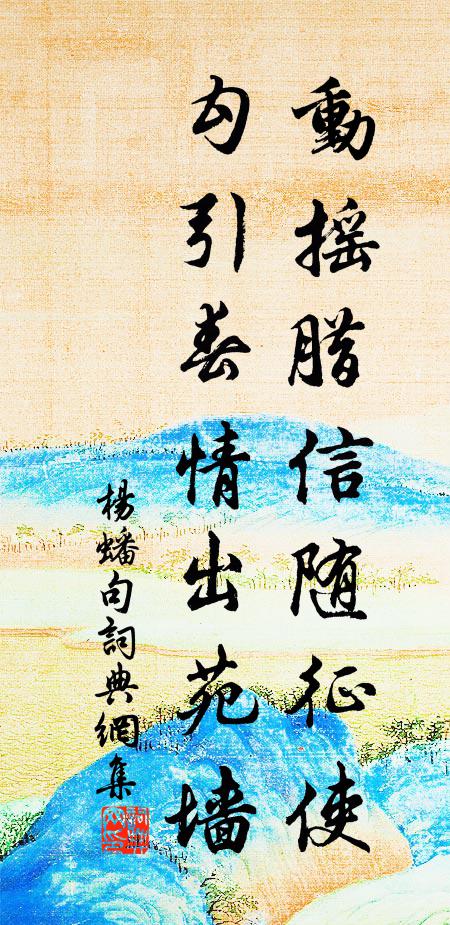 動摇腊信随征使
勾引春情出苑墙
楊蟠句詞典網集